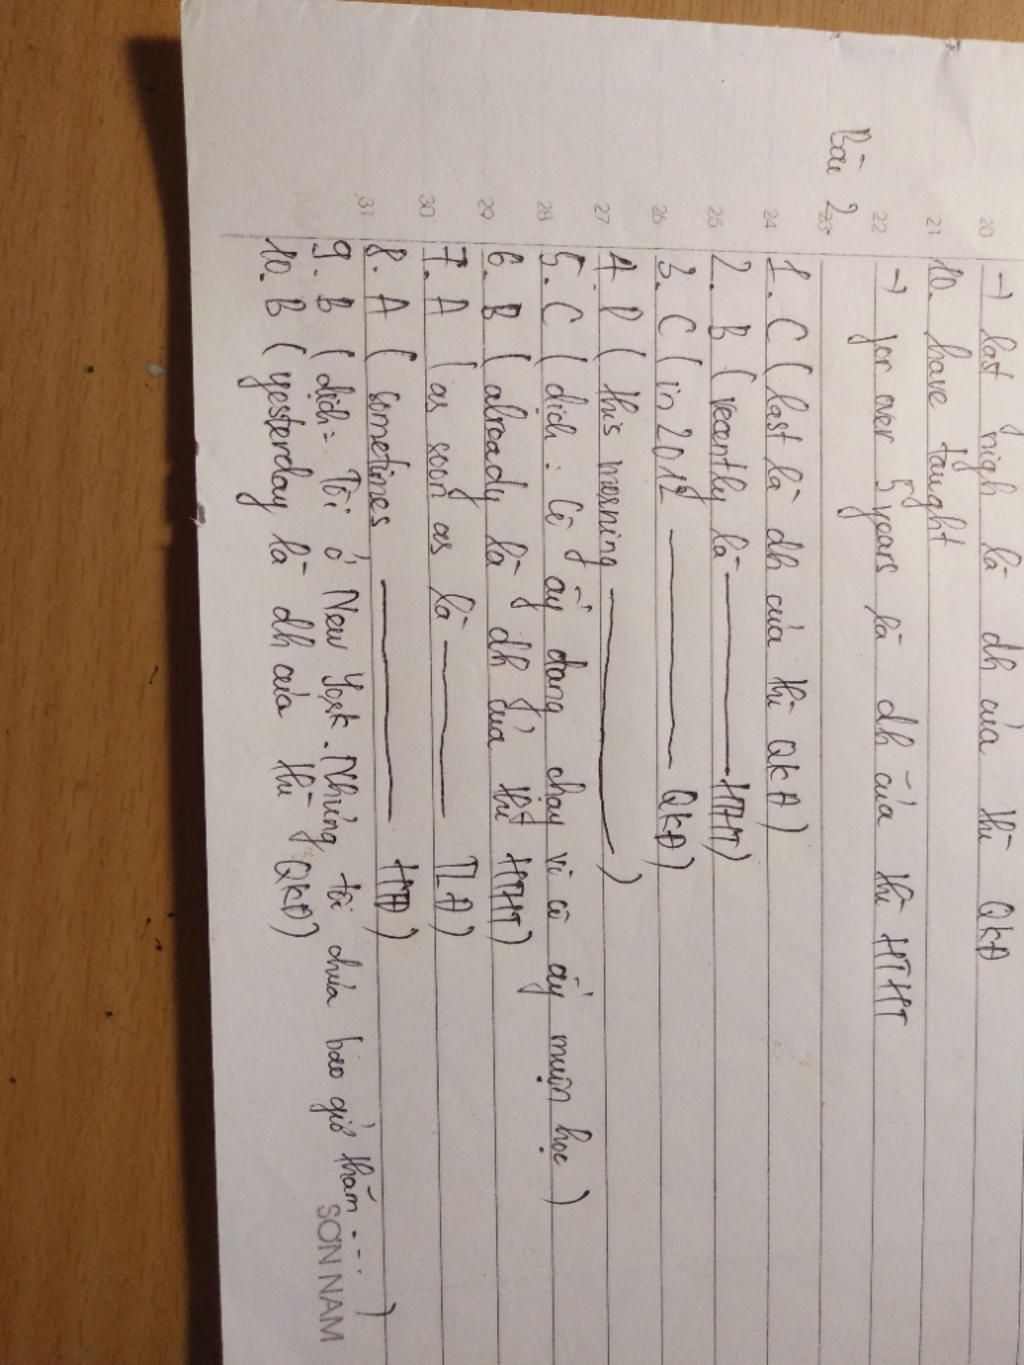 20 → last nigh là dh của thì QKĐ
21 10. have taught
22 → for over 5 years là dh của thì HTHT
Bài 2 23
24 1. C (last là dh của thì QKĐ)
25 2. B (recently là ——— HTHT)
26 3. C (in 2012 ——— QKĐ)
27 4. D (this morning ———)
28 5. C (dịch: Cô ấy đang chạy vì cô ấy muộn học)
29 6. B (already là dh của thì HTHT)
30 7. A (as soon as là ——— TLĐ)
31 8. A (sometimes ——— HTĐ)
9. B (dịch: Tôi ở New York. Nhưng tôi chưa bao giờ thăm ...)
10. B (yesterday là dh của thì QKĐ)
SƠN NAM